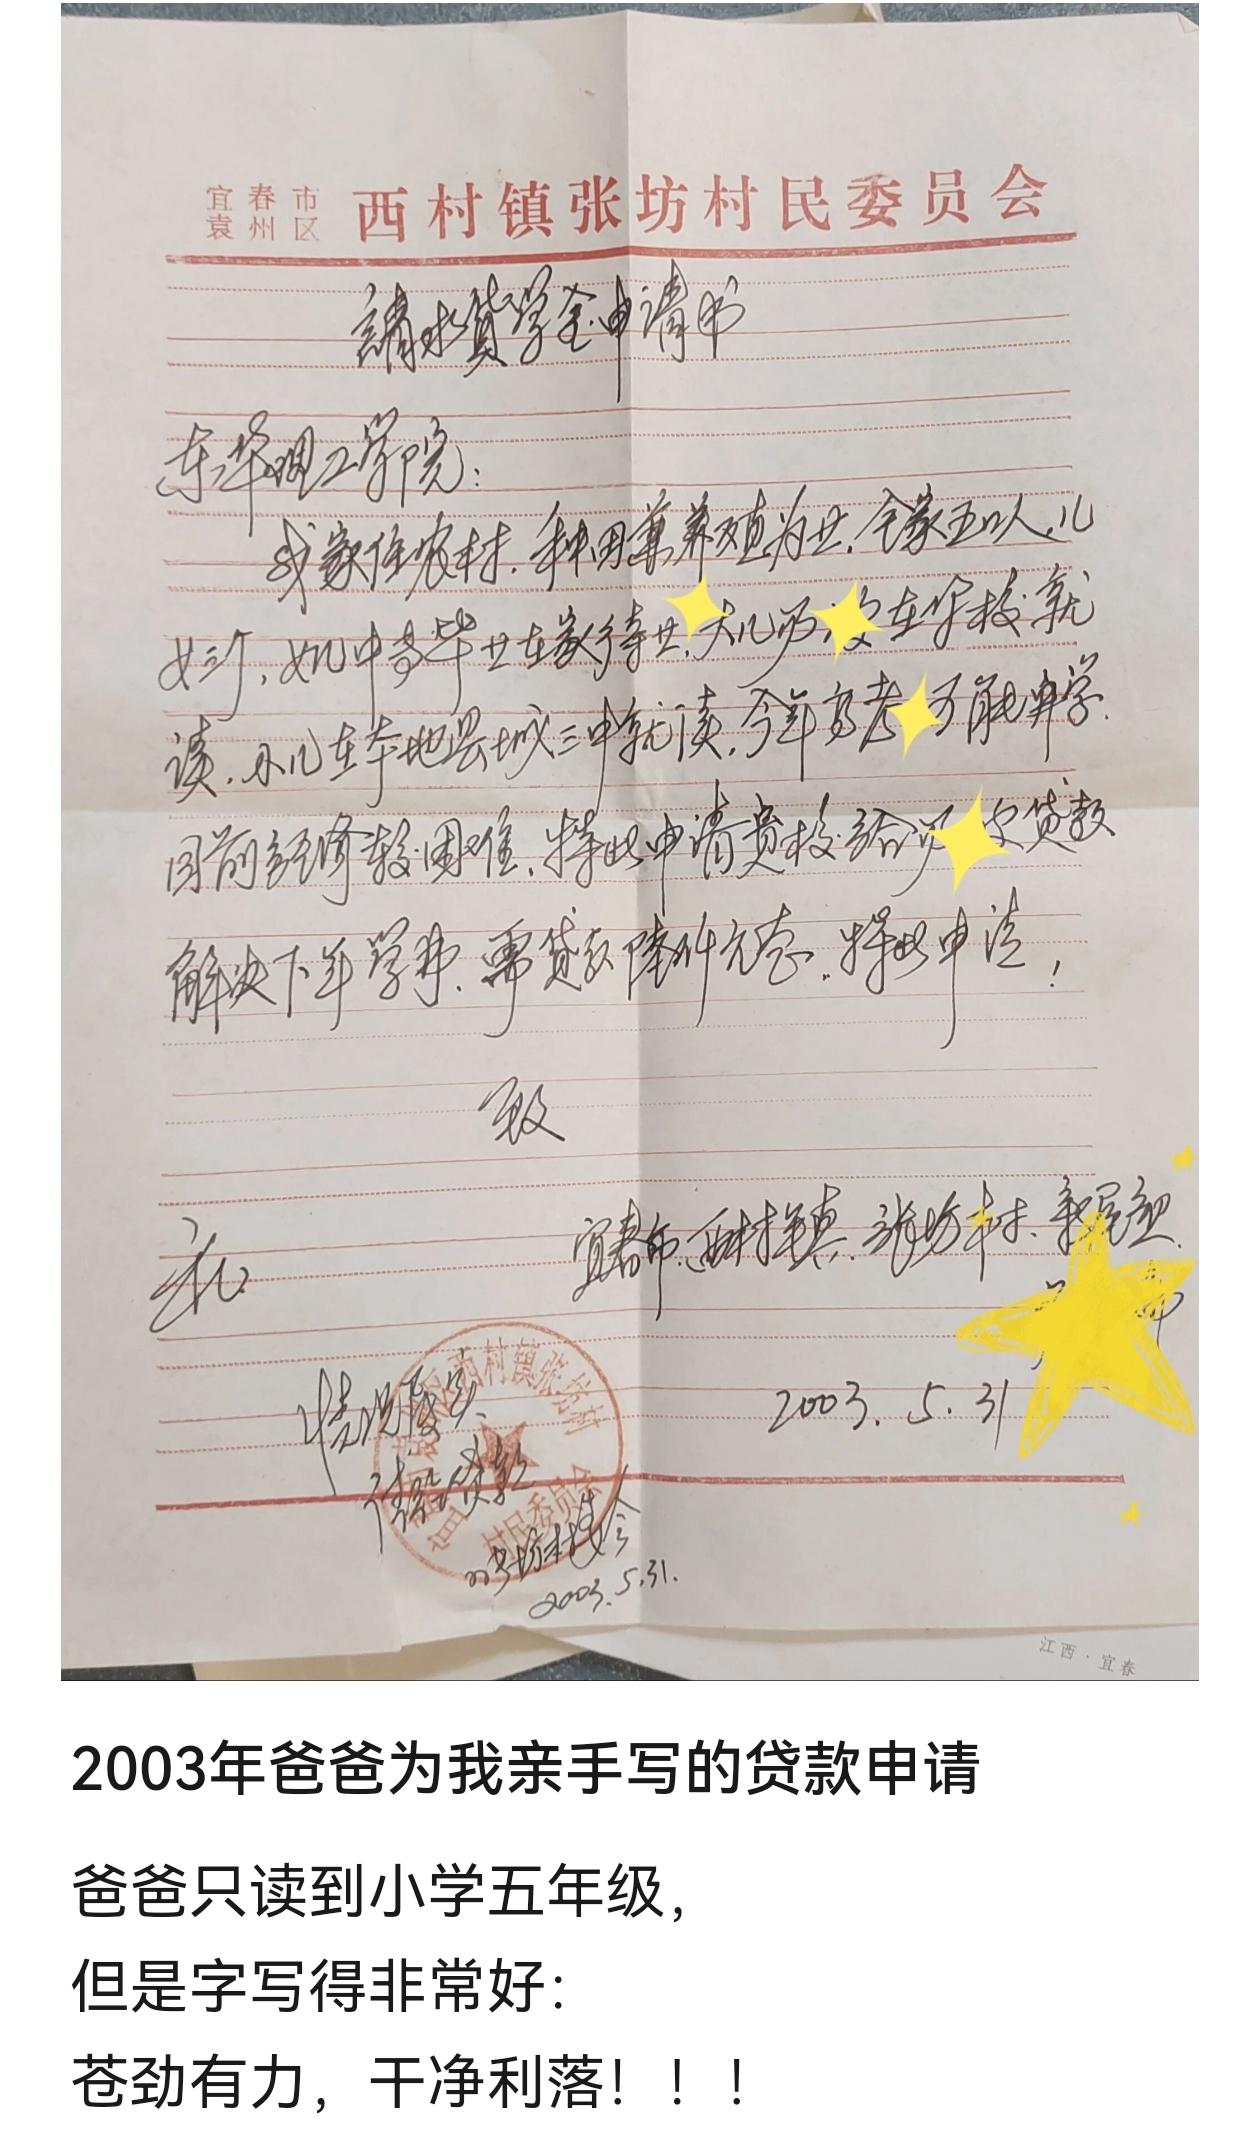 宜春市
袁州区
西村镇张坊村民委员会
請求贷学金申请书
东华理工学院:
我家住农村,种田兼养殖为业,全家五口人,儿
女三个,女儿中专毕业在家待业,大儿 在学校就
读,小儿在本地县城三中就读,今年高考 可能升学.
目前经济较困难,特此申请贵校给 贷款
解决下年学费,需贷款陆仟元 。特此申请!
致
礼
宜春市.西村镇.张坊村.
2003. 5. 31
情况属实,
请给贷款
张坊村委会
2003.5.31.
西村镇张坊村
村民委员会
江西·宜春
2003年爸爸为我亲手写的贷款申请
爸爸只读到小学五年级,
但是字写得非常好:
苍劲有力,干净利落!!!